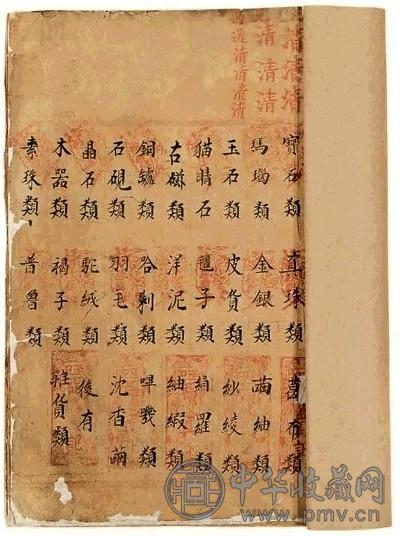 清 清 清
清 清 清
清 清 清 清
寶石類 真珠類 葛布類
馬瑙類 金銀類 繭紬類
玉石類 皮貨類 紗綾類
貓睛石 子類 絹羅類
古磁類 洋泥類 紬緞類
銅鑪類 哈剌類 嗶嘰類
石硯類 羽毛類 沈香繭
晶石類 駝絨類 後有
木器類 褐子類 雜貨類
素珠類 普魯類
中华收藏网
www.pmv.cn